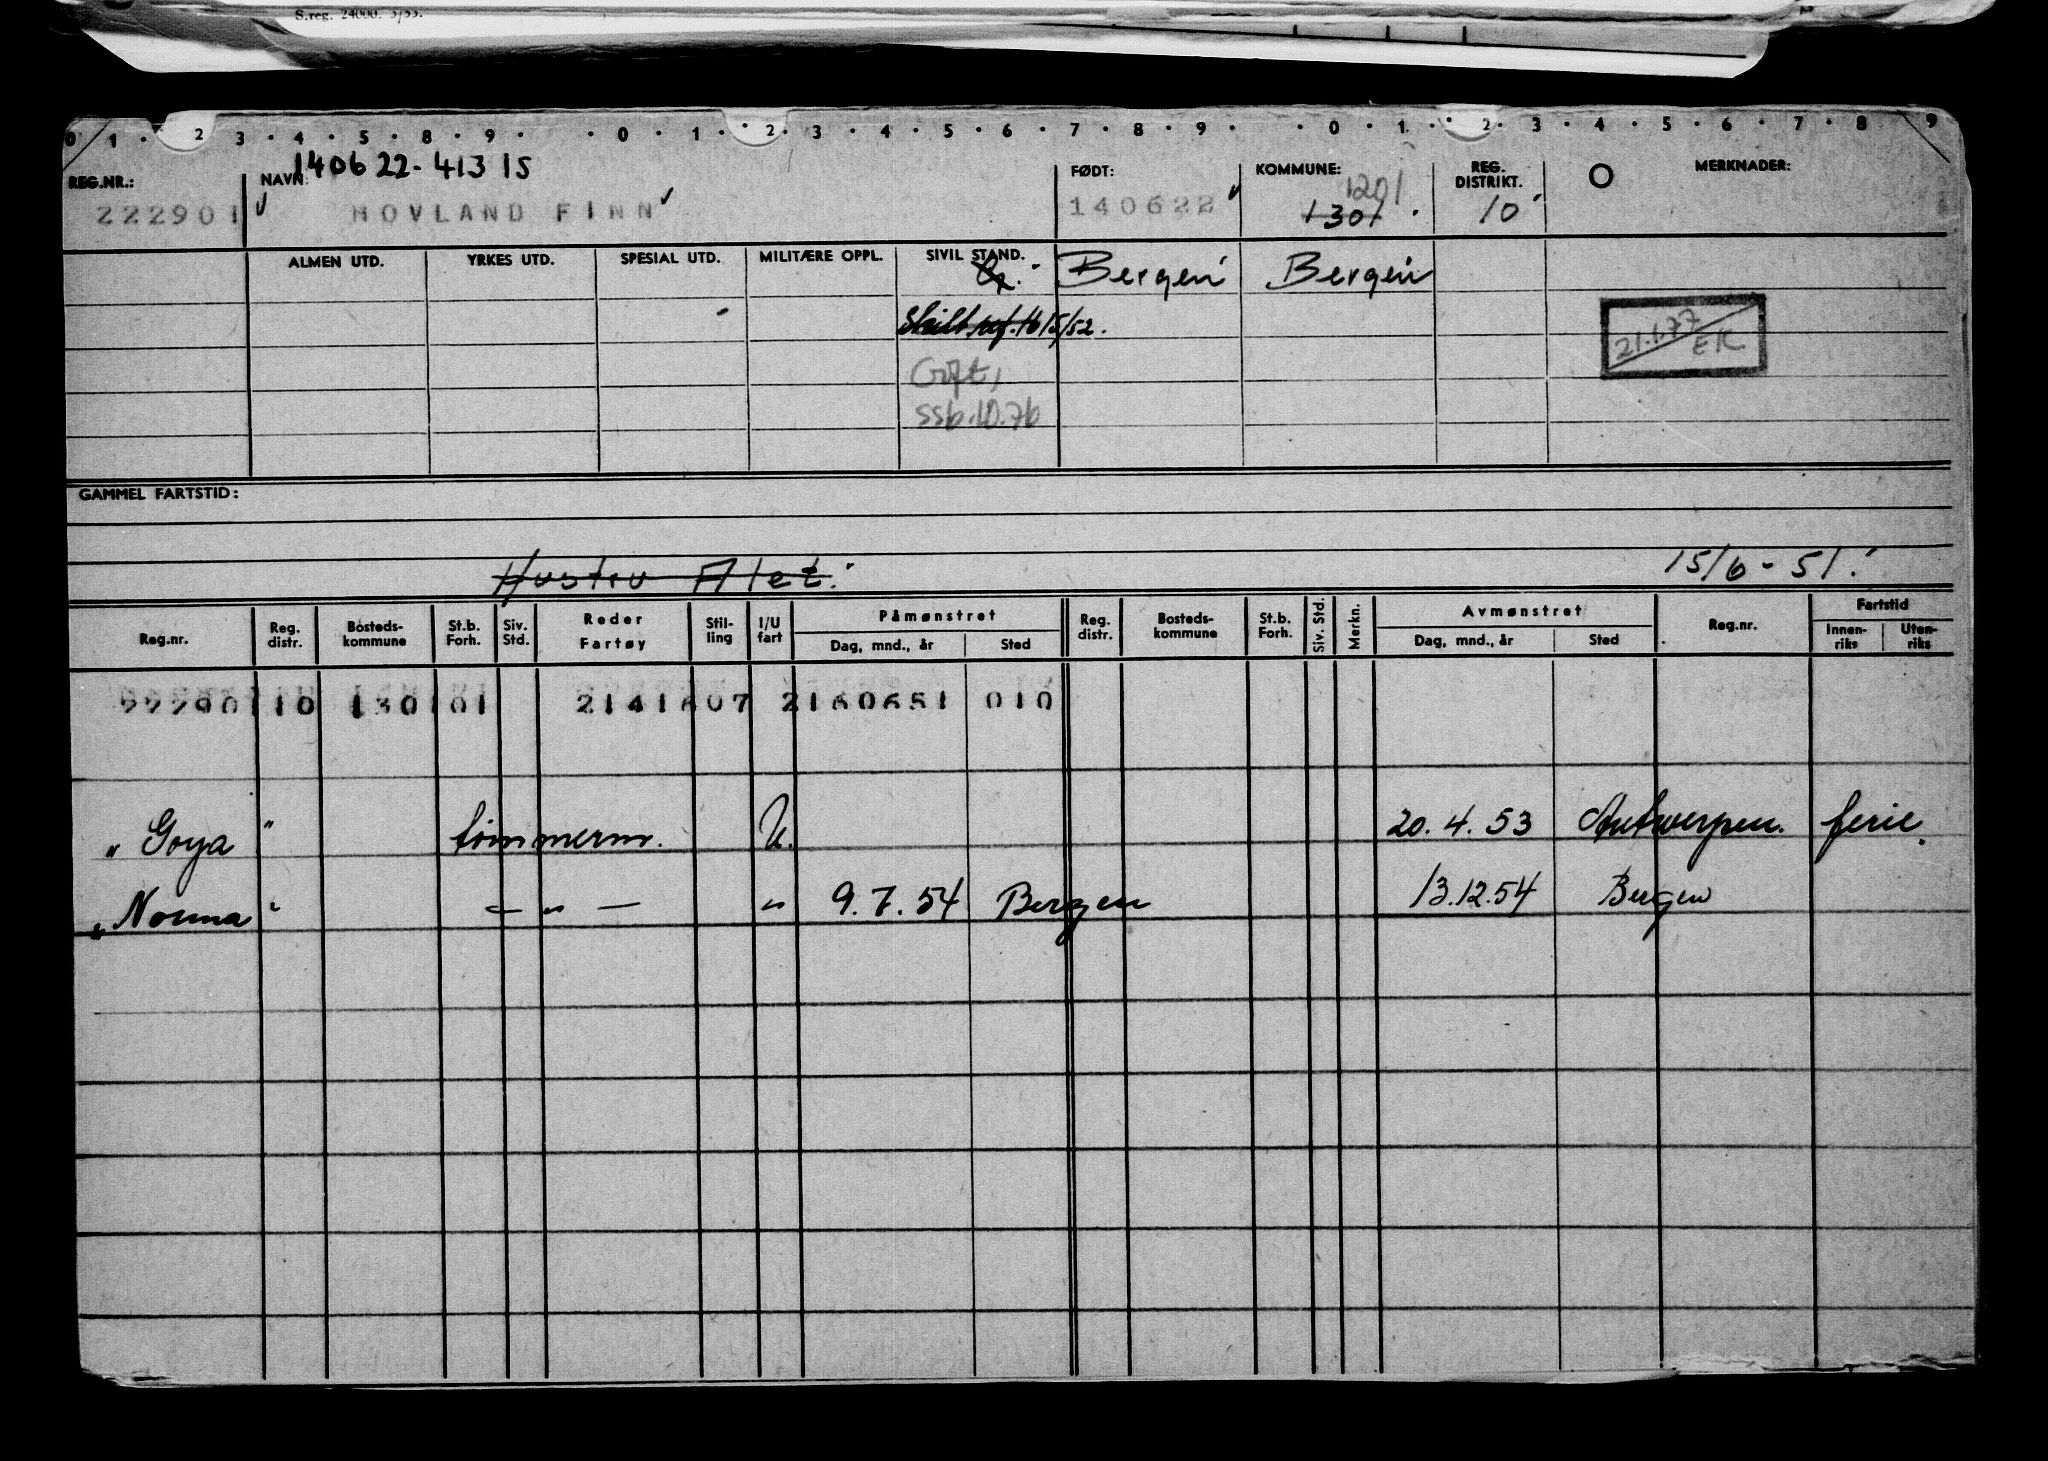 S.reg. 24000. 3/53.
0 1 · 2 3 · 4 · 5 · 8 · 9 · · 0 · 1 · 2 · 3 · 4 · 5 · 6 · 7 · 8 · 9 · · 0 · 1 · 2 · 3 · 4 · 5 · 6 · 7 · 8 9
140622-41315
REG.NR.: NAVN: FØDT: KOMMUNE: REG. DISTRIKT. MERKNADER:
1201
222901 HOVLAND FINN 140622 1301 10
ALMEN UTD. YRKES UTD. SPESIAL UTD. MILITÆRE OPPL. SIVIL STAND. Bergen Bergen
15/52.
21.1.77 EK
Gift,
ssb.10.76
GAMMEL FARTSTID:
Hustru Alet. 15/6-51.
Reg.nr. Reg. distr. Bosteds-kommune St.b. Forh. Siv. Std. Reder Fartøy Stil-ling I/U fart Påmønstret Dag, mnd., år Sted Reg. distr. Bosteds-kommune St.b. Forh. Siv. Std. Merkn. Avmønstret Dag, mnd., år Sted Reg.nr. Fartstid Innen-riks Uten-riks
222901 10 130101 2141607 2160651 010
" Goya " tømmerm. U. 20.4.53 Antwerpen. ferie.
" Norma " — " — " 9.7.54 Bergen 13.12.54 Bergen